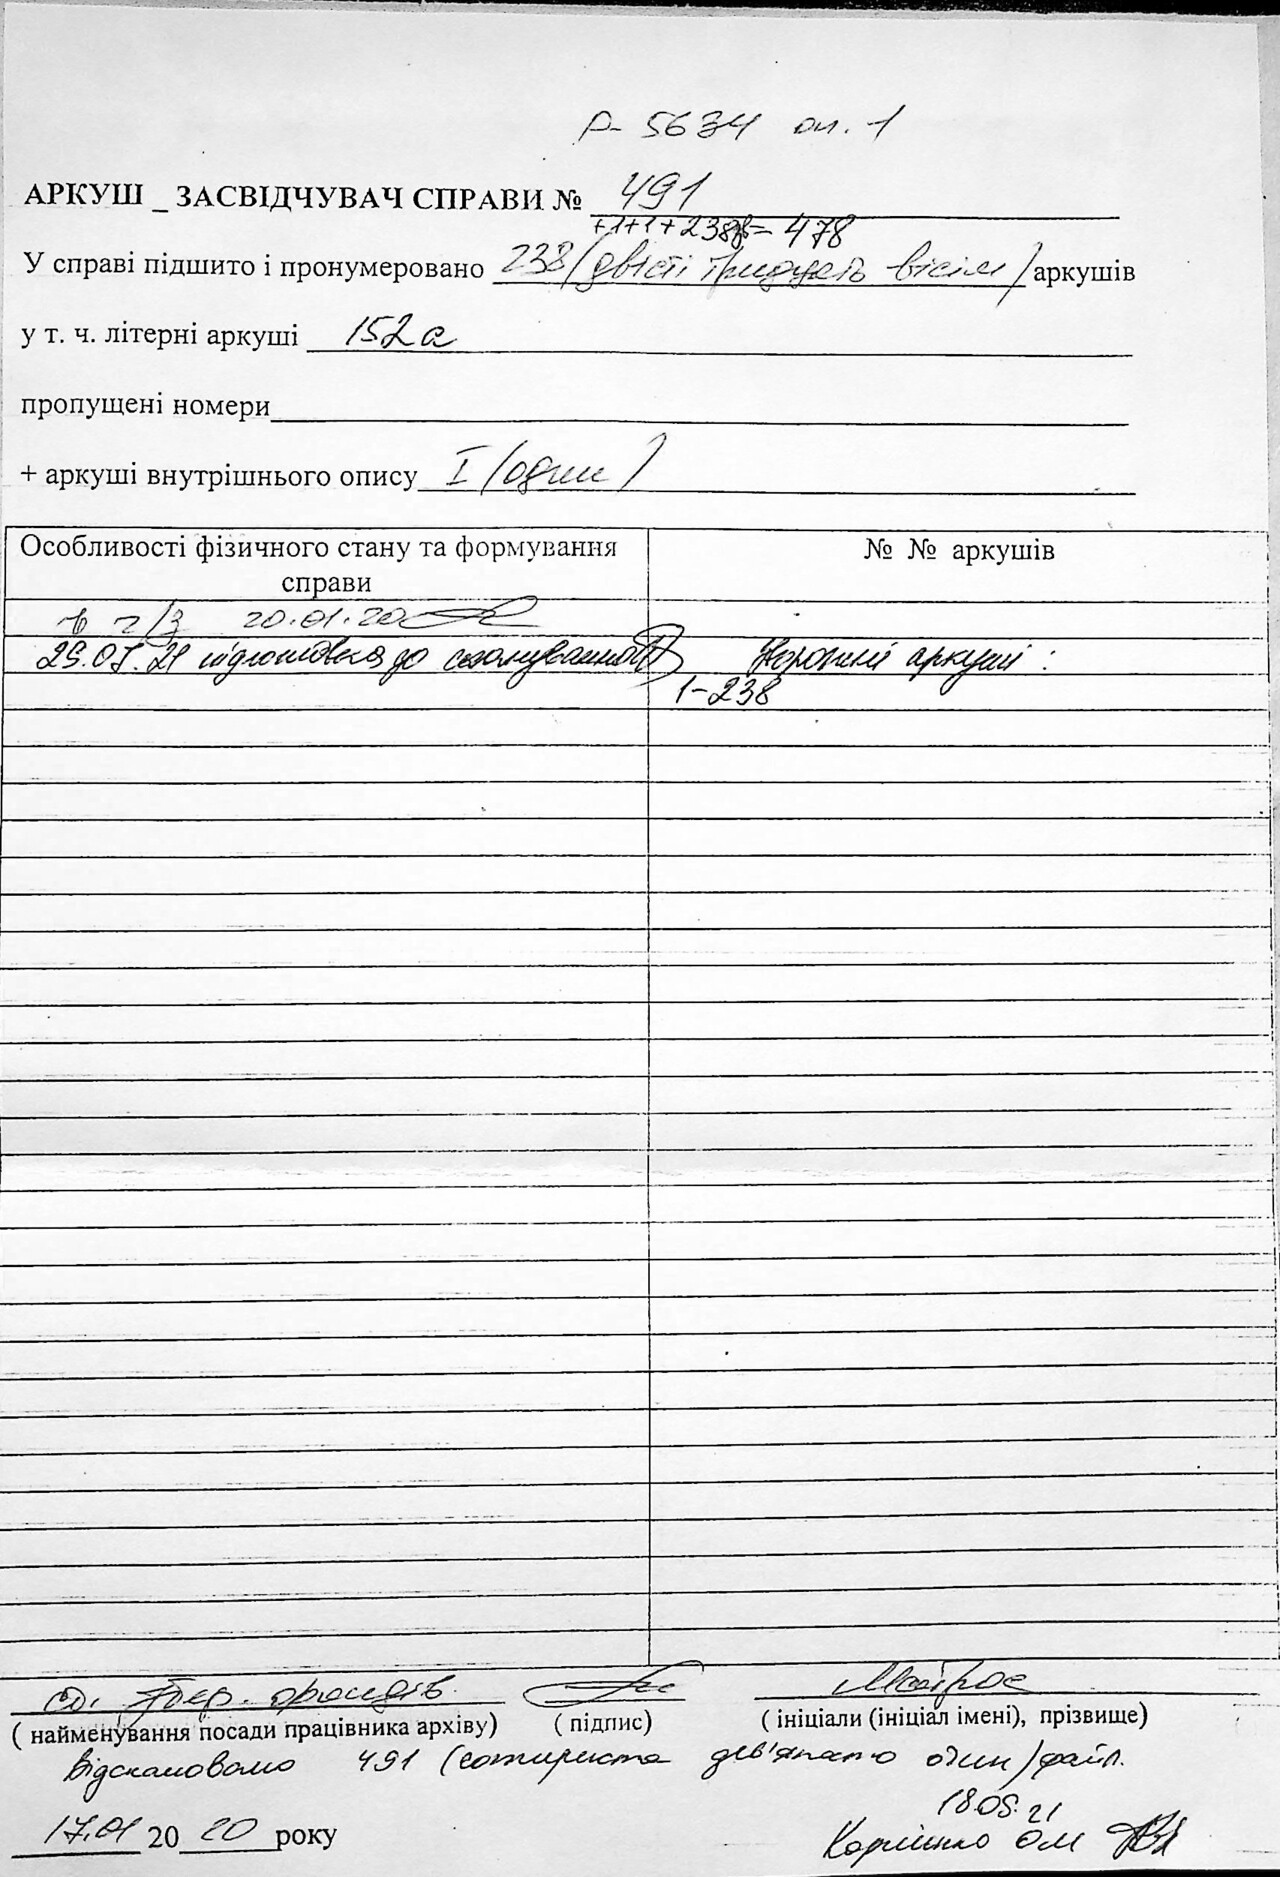 Р- 5634 оп. 1
АРКУШ _ ЗАСВІДЧУВАЧ СПРАВИ № 491
+1+1+238зв= 478
У справі підшито і пронумеровано 238 /двісті тридцять вісім/ аркушів
у т. ч. літерні аркуші 152а
пропущені номери
+ аркуші внутрішнього опису I /один/
Особливості фізичного стану та формування справи
№ № аркушів
в ч/з 20.01.20
підготовка до сканування
аркуші :
1-238
збер. фондів
( найменування посади працівника архіву) ( підпис) ( ініціали (ініціал імені), прізвище)
Відскановано 491 (чотириста дев'яносто один) файл.
18.05.21
17.01 20 20 року